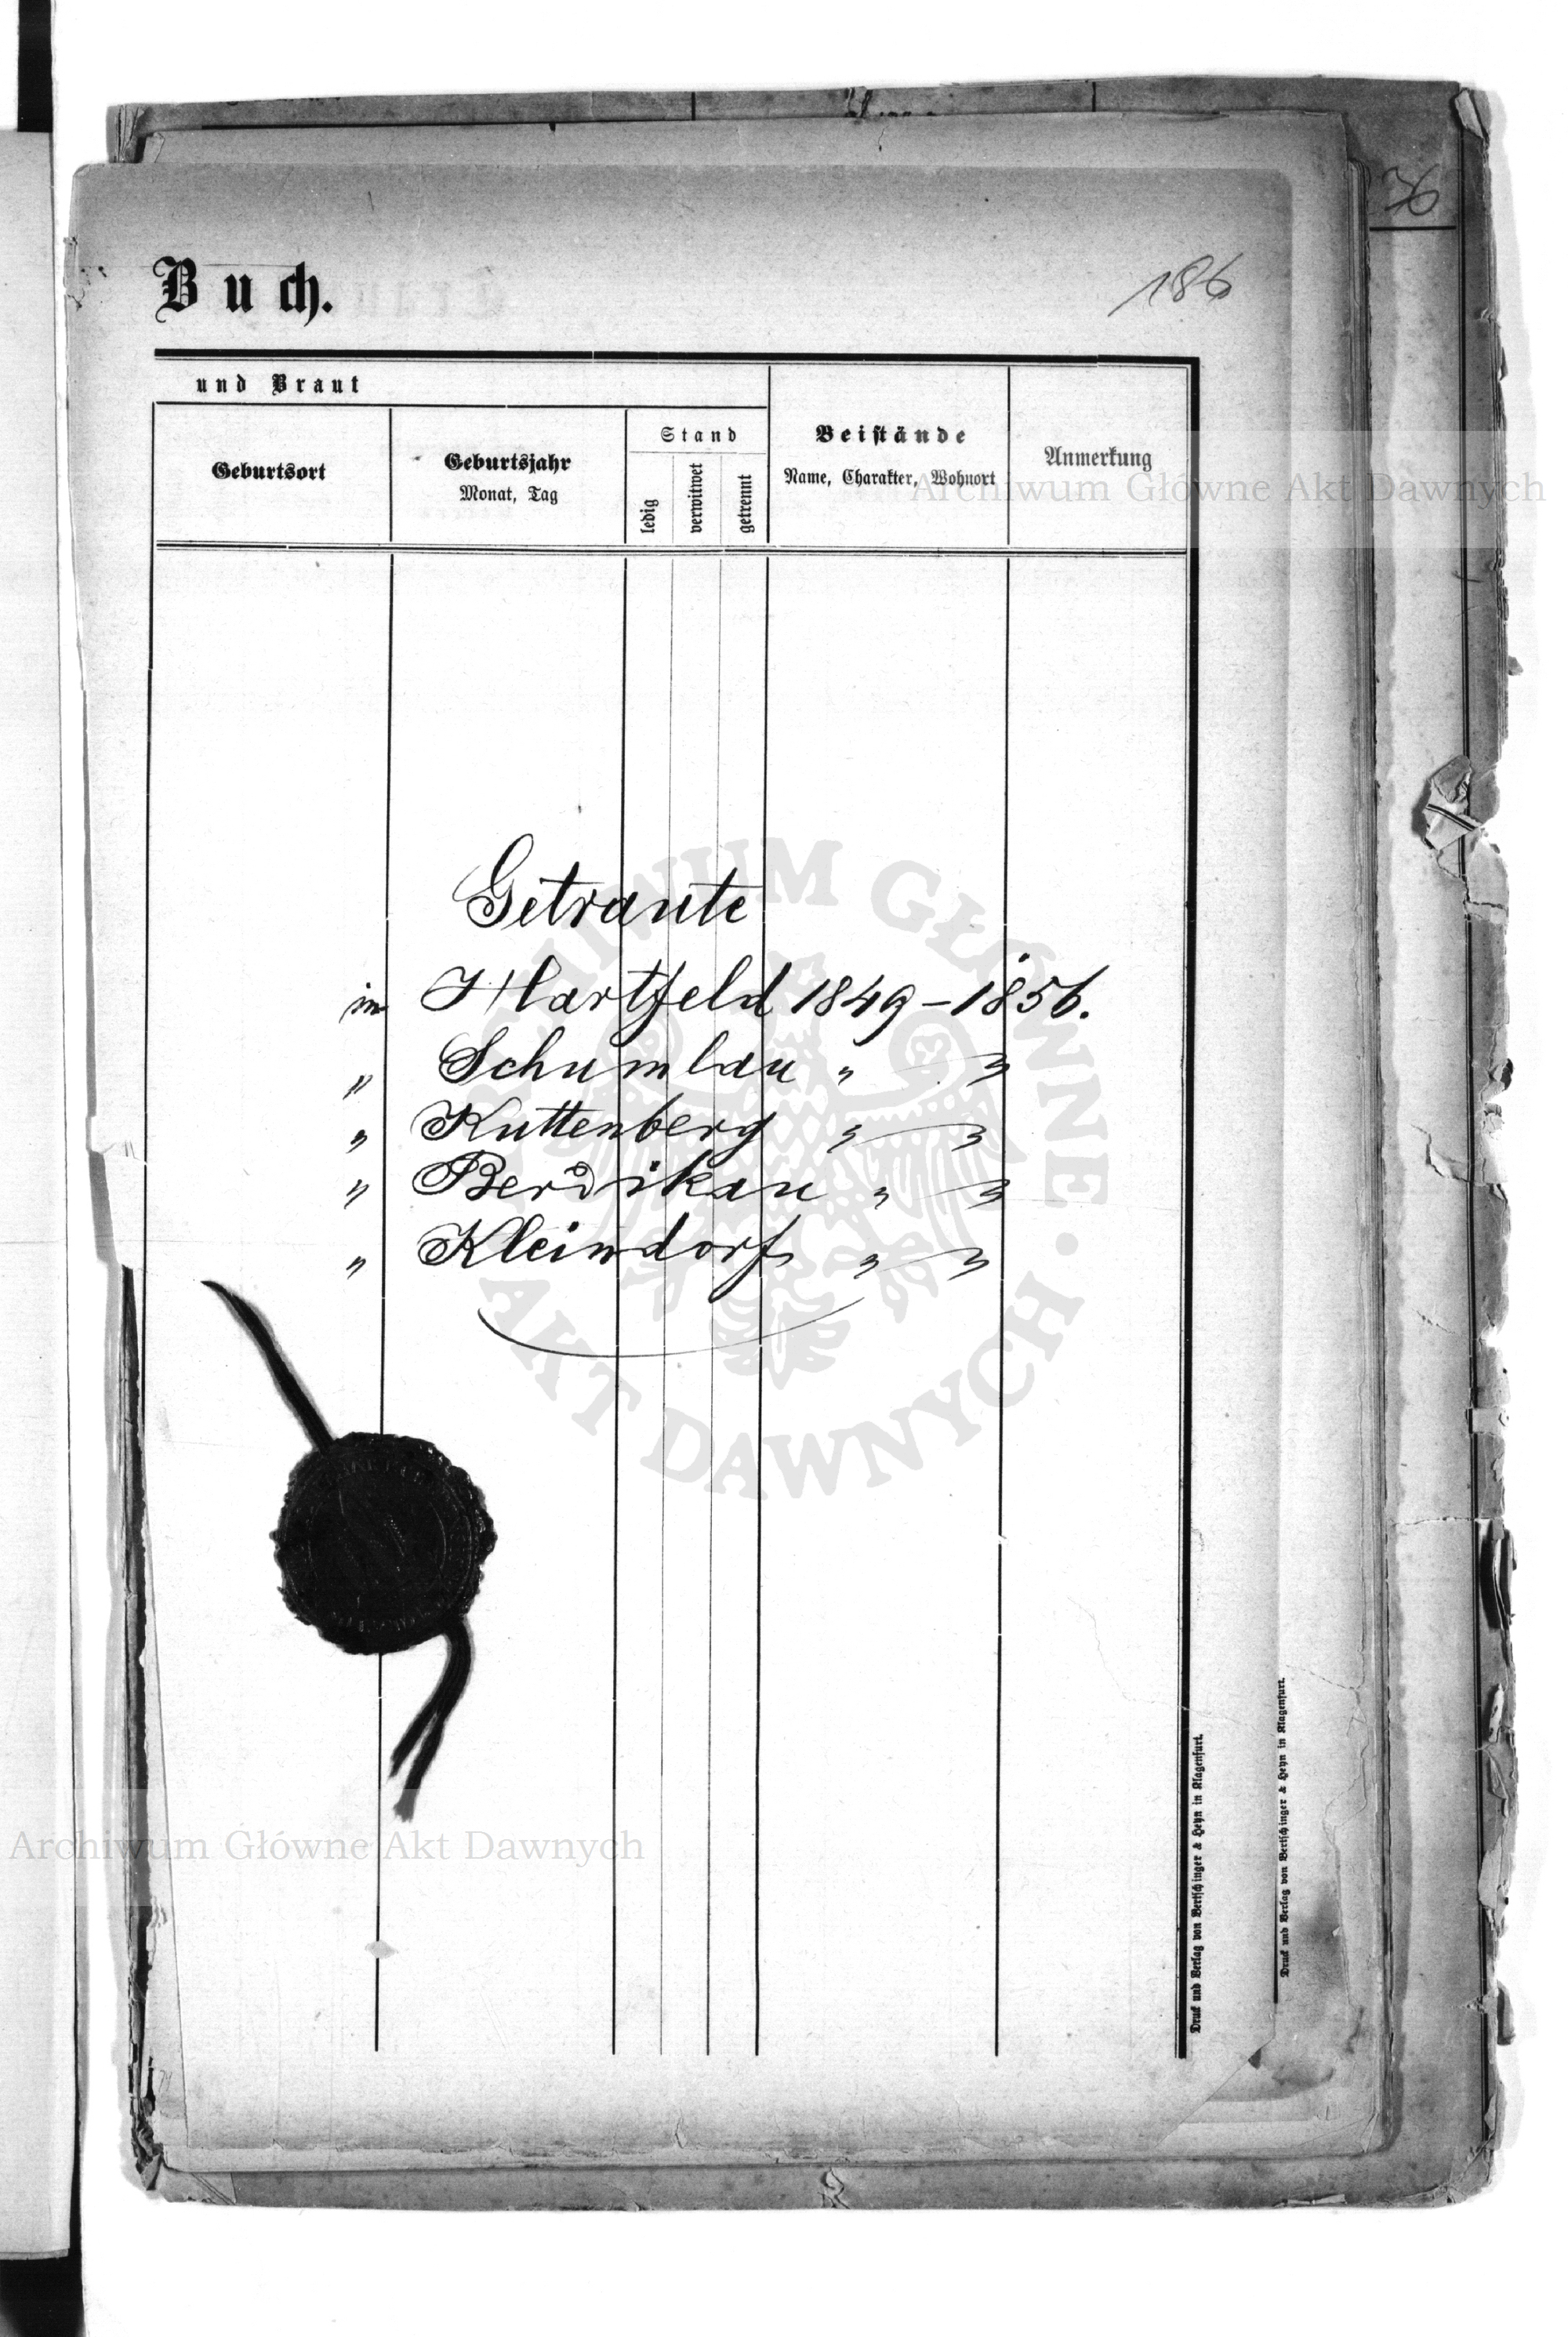 36
Buch.
186
und Braut
Geburtsort
Geburtsjahr
Monat, Tag
Stand
ledig
verwitwet
getrennt
Beistände
Name, Charakter, Wohnort
Anmerkung
Archiwum Główne Akt Dawnych
Getraute
in Hartfeld 1849 – 1856.
" Schumlau " "
" Kuttenberg " "
" Berdikau " "
" Kleindorf " "
ARCHIWUM GŁÓWNE • AKT DAWNYCH
Archiwum Główne Akt Dawnych
Druck und Verlag von Bertschinger & Heyn in Klagenfurt.
Druck und Verlag von Bertschinger & Heyn in Klagenfurt.